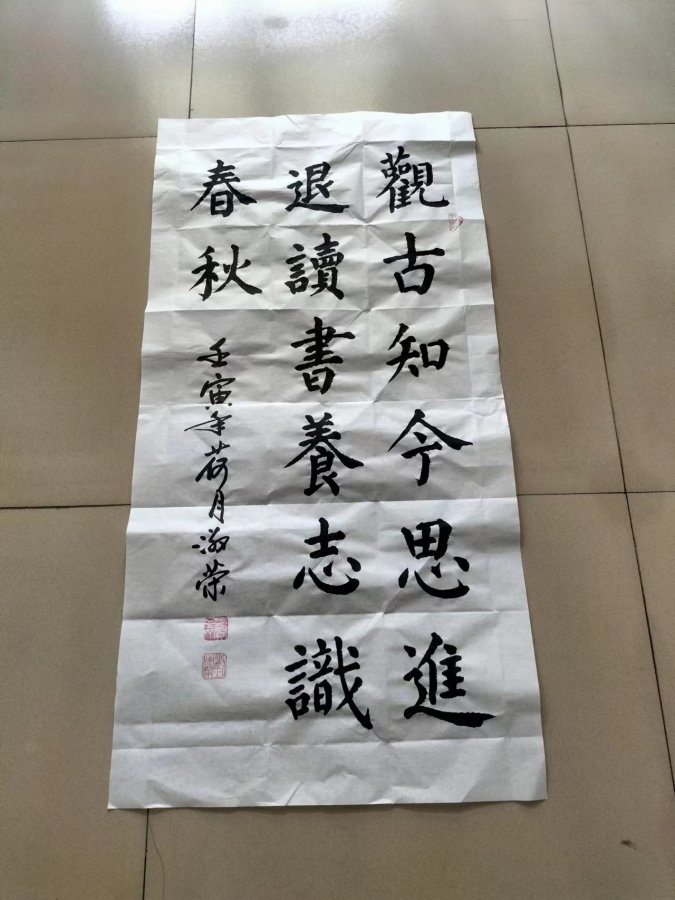 觀古知今思進
退讀書養志識
春秋
壬寅年荷月淑荣